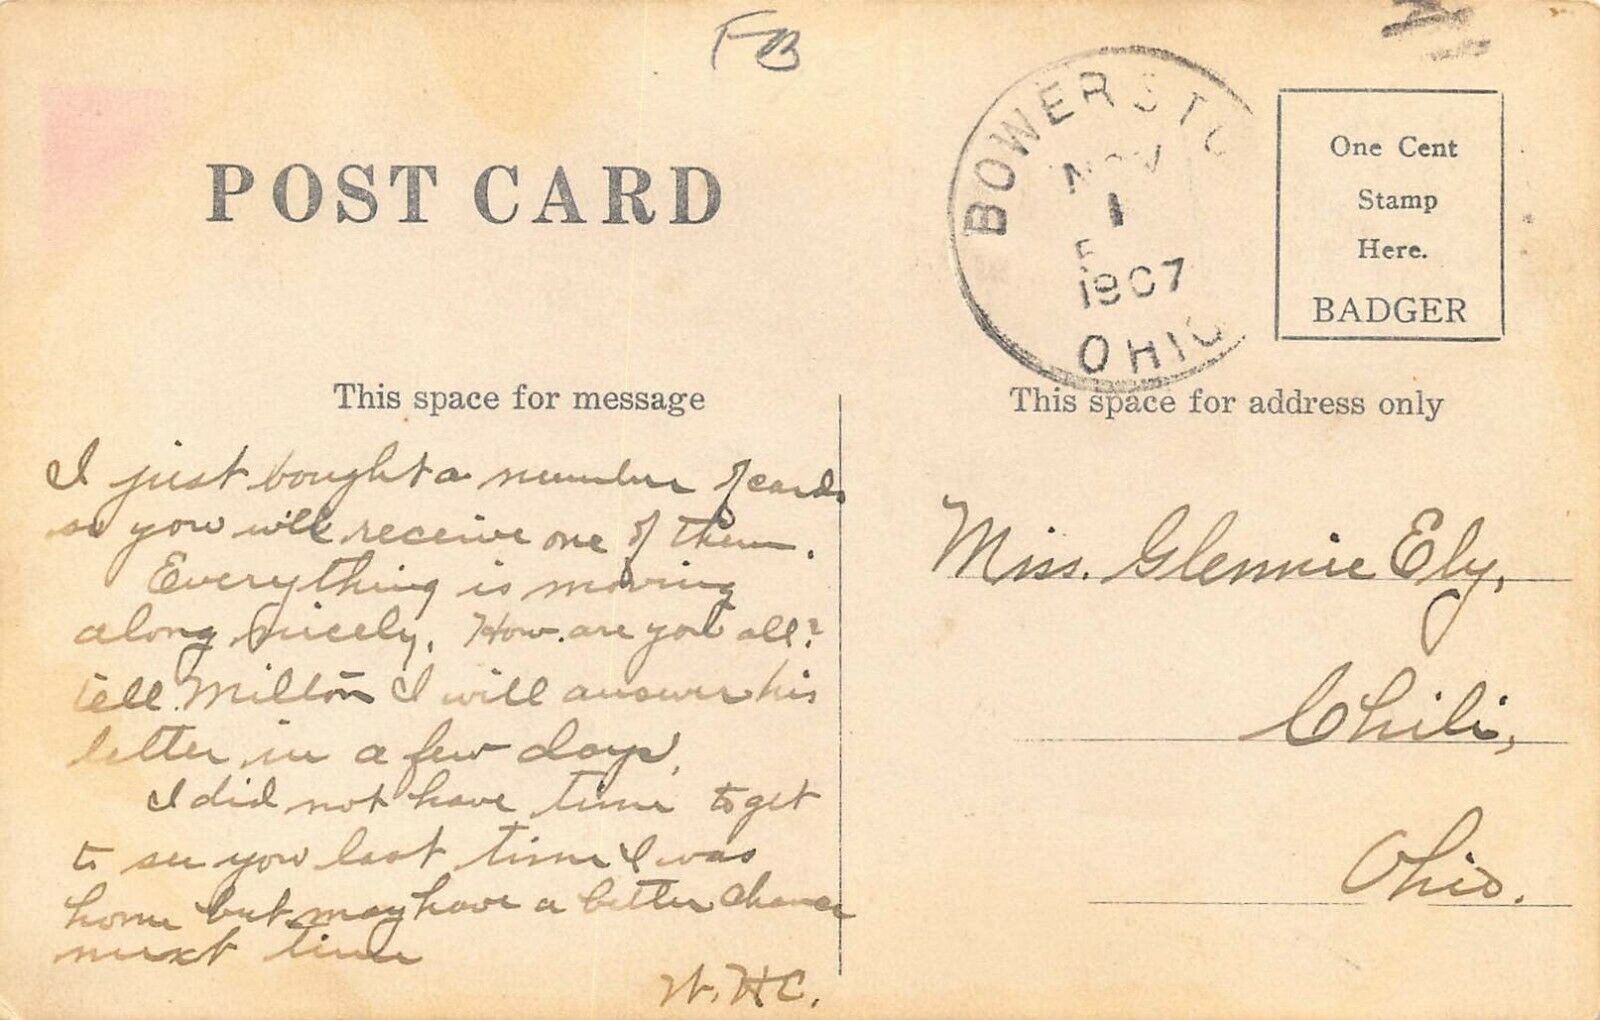 FB
POST CARD
BOWERSTO
NOV
1
1907
OHIO
One Cent
Stamp
Here.
BADGER
This space for message
This space for address only
I just bought a number of cards
so you will receive one of them.
Everything is moving
along nicely. How are you all?
tell Milton I will answer his
letter in a few days.
I did not have time to get
to see you last time I was
home but may have a better chance
next time
W. H C.
Miss. Glennie Ely,
Chili,
Ohio.